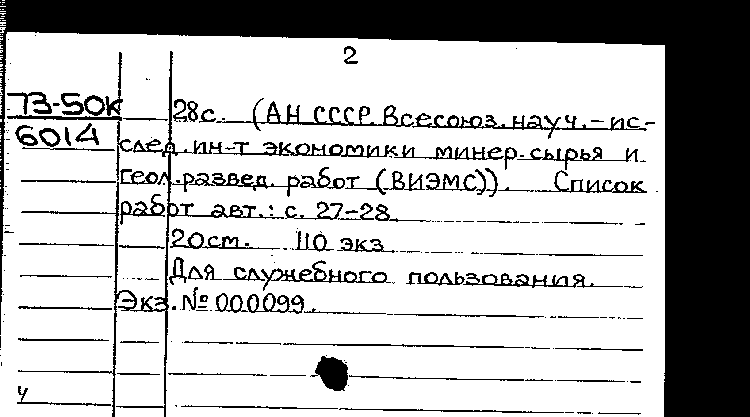 2
73-50К 28с. (АН СССР. Всесоюз. науч.-ис-
6014 след. ин-т экономики минер. сырья и
геол.развед. работ (ВИЭМС)). Список
работ авт.: с. 27-28.
20см. 110 экз
Для служебного пользования.
Экз. № 000099.
ч